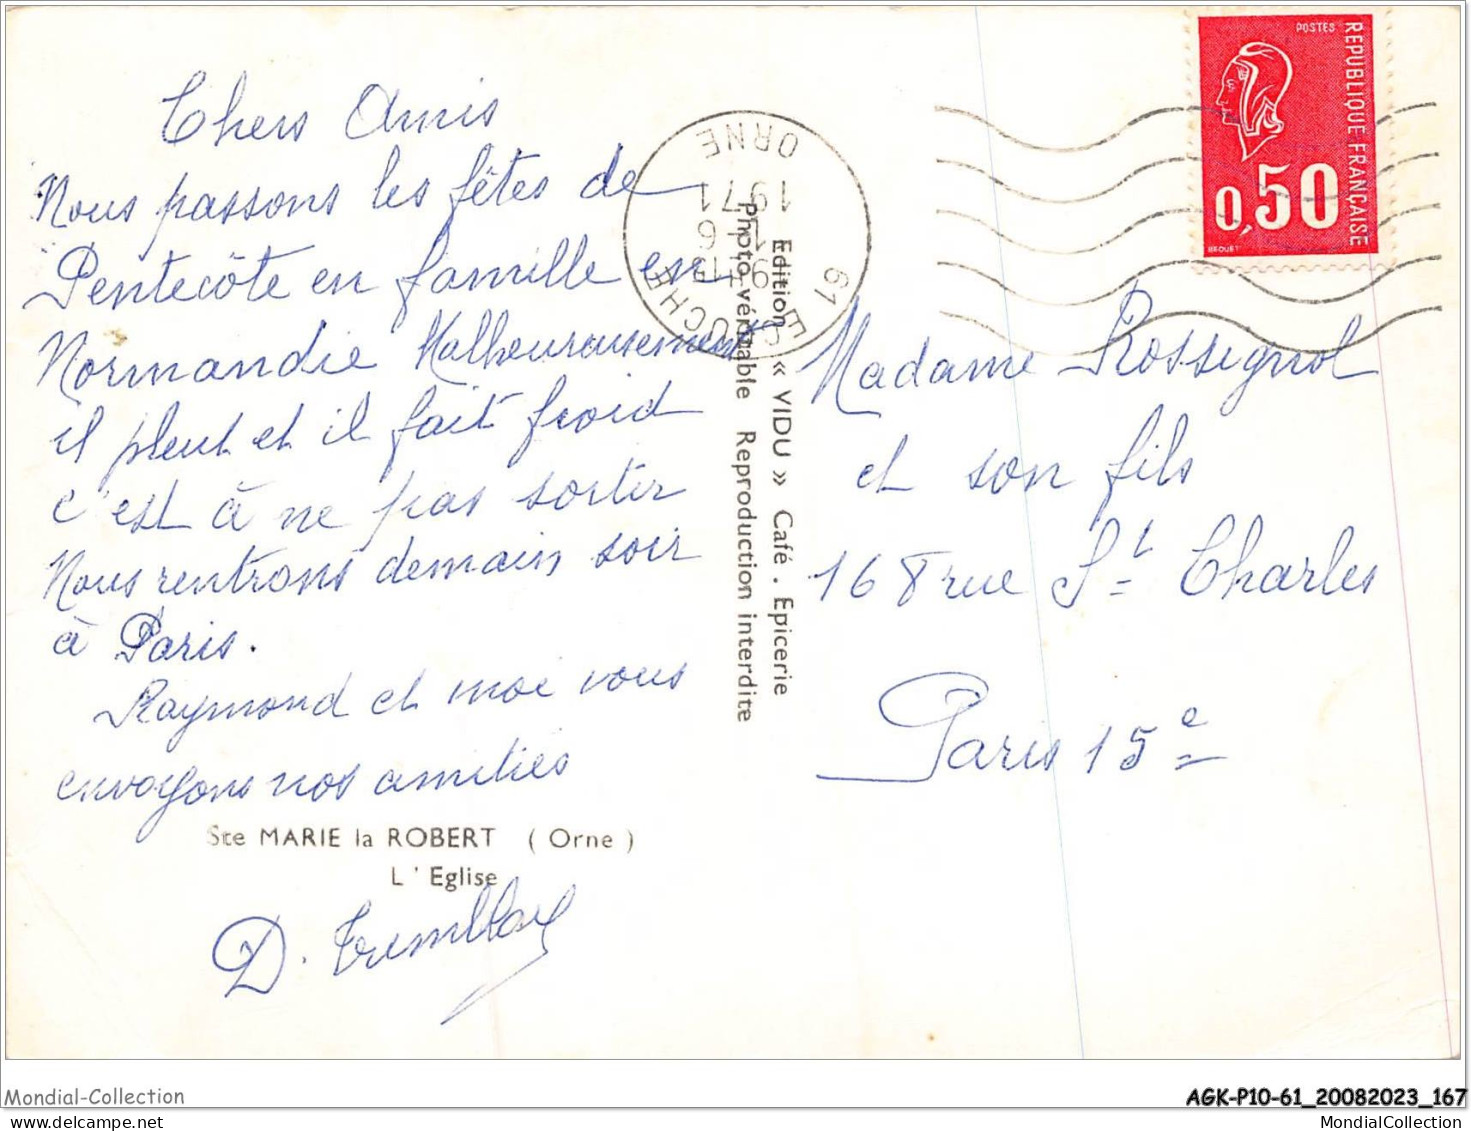 Chers Amis
Nous passons les fêtes de
Pentecôte en famille en
Normandie Malheureusement
il pleut et il fait froid
c'est à ne pas sortir
Nous rentrons demain soir
à Paris.
Raymond et moi vous
envoyons nos amitiés
Ste MARIE la ROBERT ( Orne )
L ' Eglise
D. Tremblay
Edition « VIDU » Café . Epicerie
Photo véritable Reproduction interdite
61 ORNE
1971
POSTES
REPUBLIQUE FRANÇAISE
0,50
BEQUET
Madame Rossignol
et son fils
168 rue St Charles
Paris 15e
Mondial-Collection
AGK-P10-61_20082023_167
MondialCollection